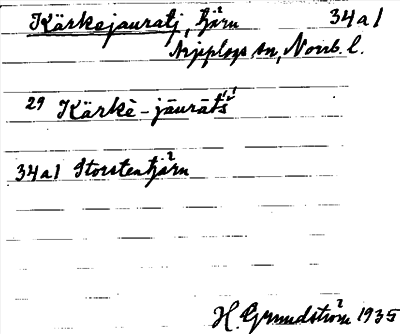 Kärkejauratj, tjärn 34a1
Arjeplogs sn, Norrb. l.
29 Kärkē-jāurāt́ś
34a1 Storstentjärn
H. Grundström 1935